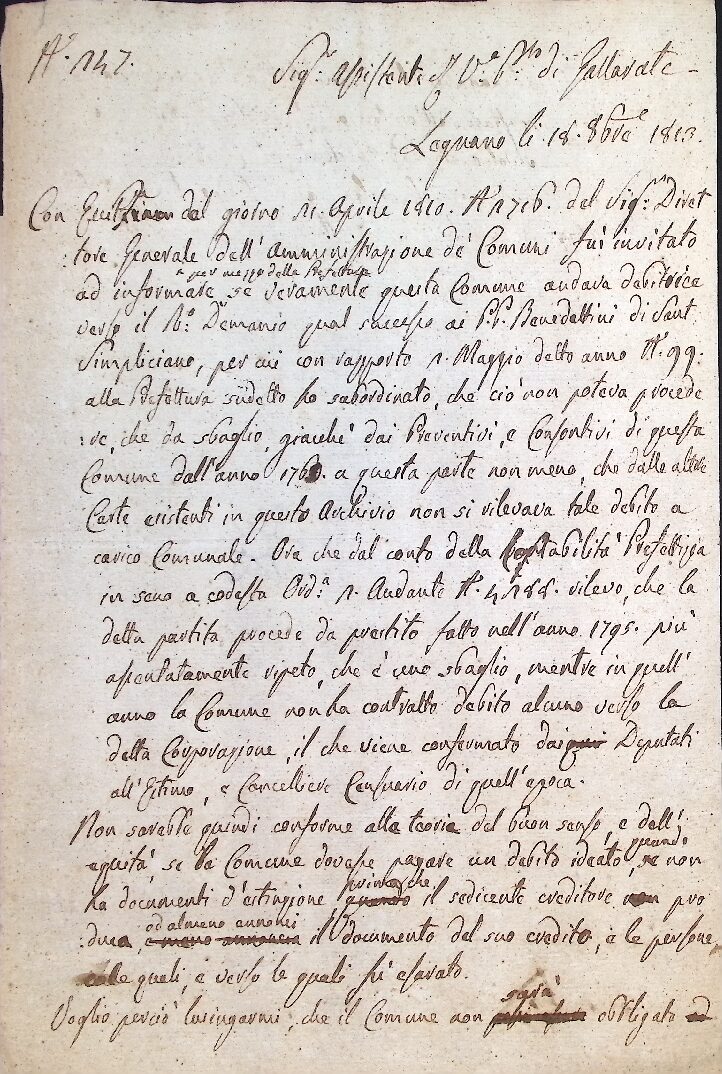 N.° 147.
Sig.r Assistente V.e P.tto di Gallarate
Legnano li 18. 8bre 1813.
Con del giorno 21. Aprile 1810. N.° 1716. del Sig.r Diret
:tore Generale dell'Amministrazione de' Comuni fui invitato
per mezzo della Prefettura
ad informare se veramente questa Comune andava debitrice
verso il R.° Demanio qual successo ai P.P. Benedettini di Sant
Simpliciano, per cui con rapporto 1. Maggio detto anno N.° 99.
alla Prefettura sudetto ho subordinato, che ciò non poteva procede
:re, che da sbaglio, giacchè dai Preventivi, e Consontivi di questa
Comune dall'anno 1760. a questa parte non meno, che dalle altre
Carte esistenti in questo Archivio non si rilevava tale debito a
carico Comunale. Ora che dal conto della Contabilità Prefettizia
in seno a codesta Ord.a 1. Andante N.° 4188. rilevo, che la
detta partita procede da prestito fatto nell'anno 1795. più
assentatamente ripeto, che è uno sbaglio, mentre in quell'
anno la Comune non ha contratto debito alcuno verso la
detta Corporazione, il che viene confermato dai Deputati
all'Estimo, e Cancelliere Censuario di quell'epoca.
Non sarebbe quindi conforme alla teoria del buon senso, e dell'
equità, se la Comune dovesse pagare un debito ideato, quando se non
prima che
ha documenti d'estinzione quando il sedicente creditore non pro
od almeno annonzi
:duca, e meno annoncia il documento del suo credito, e le persone,
colle quali, e verso le quali fù esarato.
sarà
Voglio perciò lusingarmi, che il Comune non obbligato ad